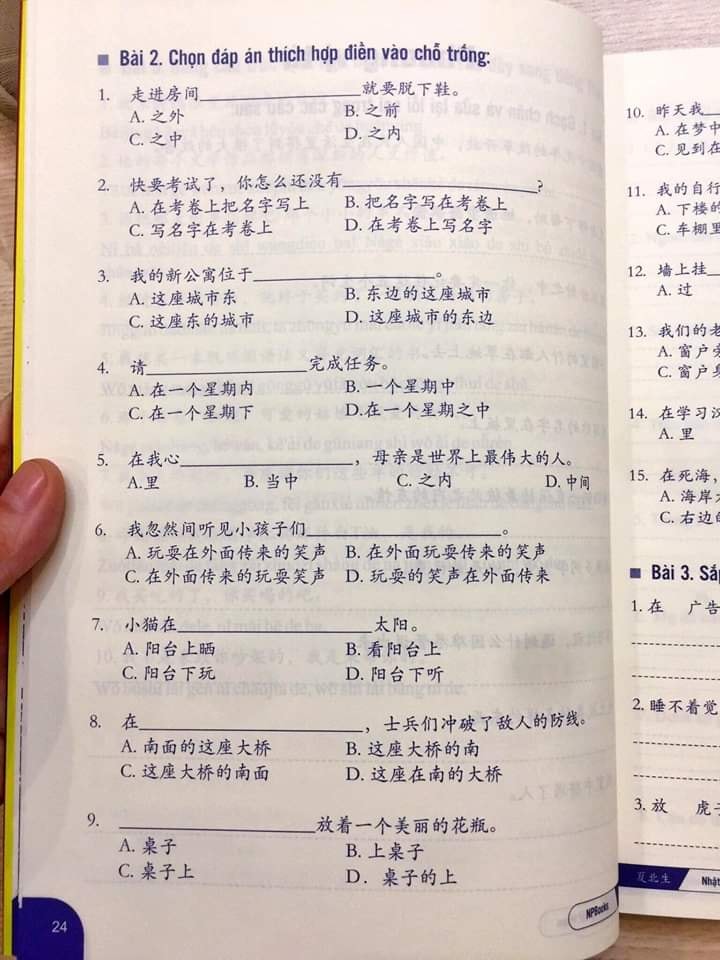 Bài 2. Chọn đáp án thích hợp điền vào chỗ trống:
1. 走进房间____________________就要脱下鞋。
A. 之外 B. 之前
C. 之中 D. 之内
2. 快要考试了，你怎么还没有____________________?
A. 在考卷上把名字写上 B. 把名字写在考卷上
C. 写名字在考卷上 D. 在考卷上写名字
3. 我的新公寓位于____________________。
A. 这座城市东 B. 东边的这座城市
C. 这座东的城市 D. 这座城市的东边
4. 请____________________完成任务。
A. 在一个星期内 B. 一个星期中
C. 在一个星期下 D.在一个星期之中
5. 在我心____________________，母亲是世界上最伟大的人。
A.里 B. 当中 C. 之内 D. 中间
6. 我忽然间听见小孩子们____________________。
A. 玩耍在外面传来的笑声 B. 在外面玩耍传来的笑声
C. 在外面传来的玩耍笑声 D. 玩耍的笑声在外面传来
7. 小猫在____________________太阳。
A. 阳台上晒 B. 看阳台上
C. 阳台下玩 D. 阳台下听
8. 在____________________，士兵们冲破了敌人的防线。
A. 南面的这座大桥 B. 这座大桥的南
C. 这座大桥的南面 D. 这座在南的大桥
9. ____________________放着一个美丽的花瓶。
A. 桌子 B. 上桌子
C. 桌子上 D. 桌子的上
24
NPBooks
10. 昨天我
A. 在梦中
C. 见到在
11. 我的自行
A. 下楼的
C. 车棚里
12. 墙上挂
A. 过
13. 我们的老
A. 窗户旁
C. 窗户
14. 在学习汉
A. 里
15. 在死海，
A. 海岸
C. 右边的
Bài 3. Sắp
1. 在 广告
2. 睡不着觉
3. 放 虎子
夏北生
Nhật